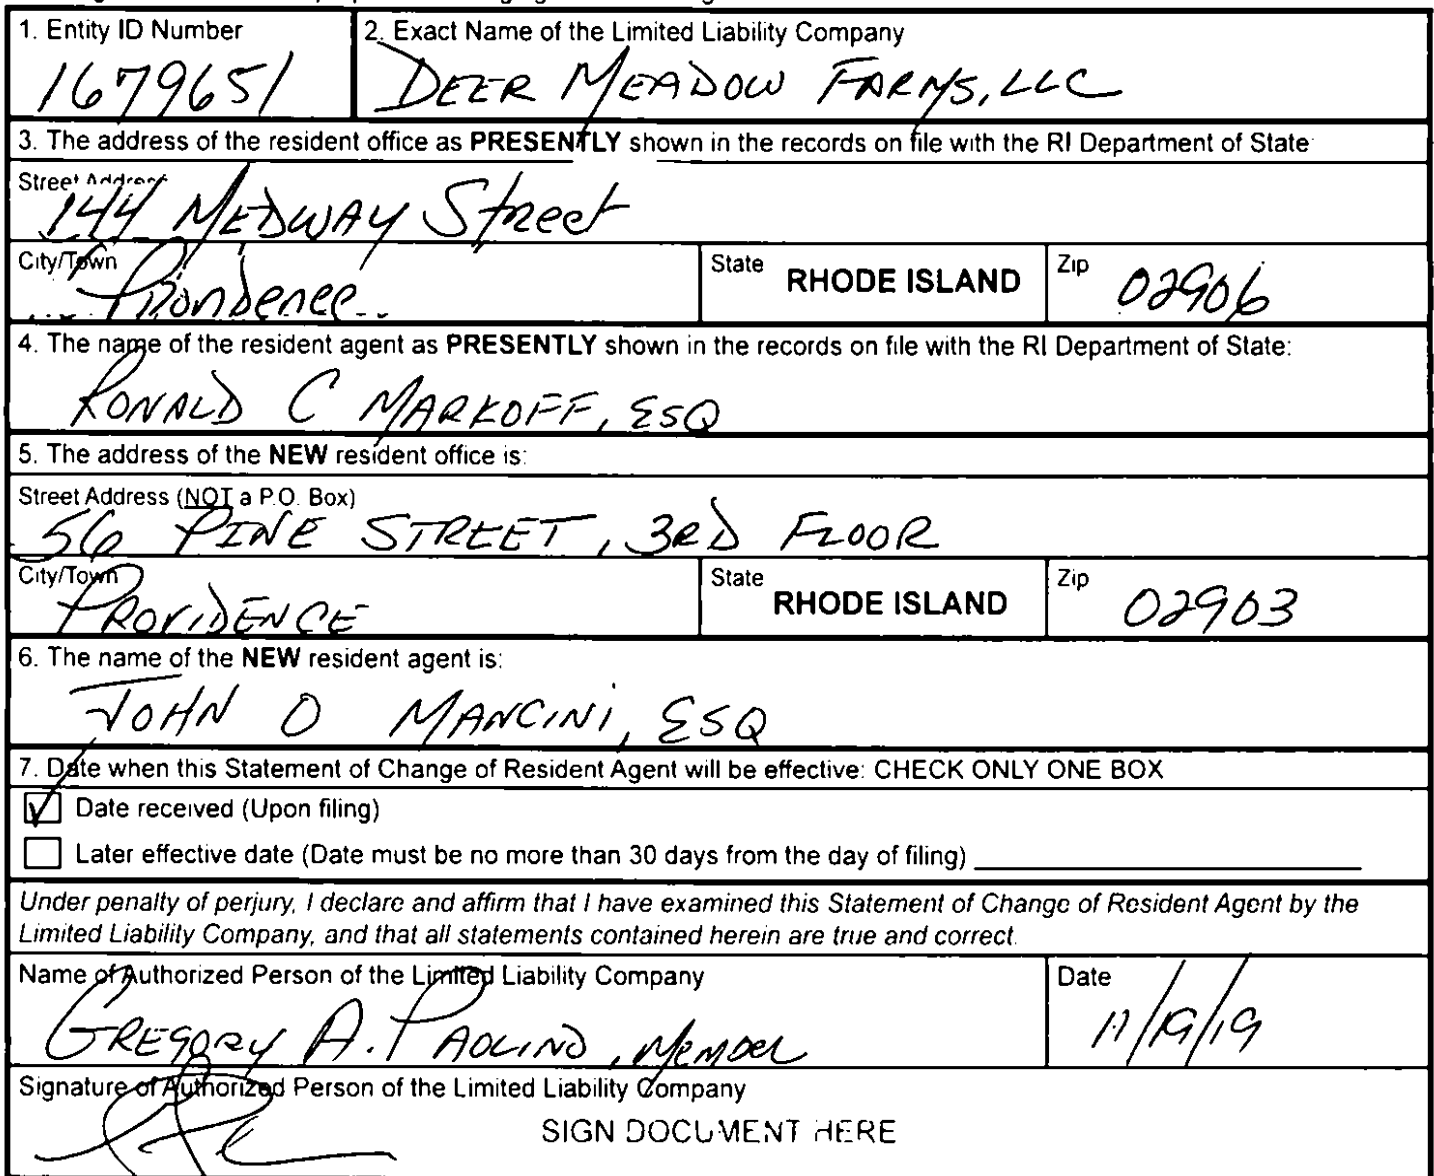 1. Entity ID Number
1679651
2. Exact Name of the Limited Liability Company
DEER MEADOW FARMS, LLC
3. The address of the resident office as PRESENTLY shown in the records on file with the RI Department of State
Street Address
144 MEDWAY Street
City/Town
Providence
State
RHODE ISLAND
Zip
02906
4. The name of the resident agent as PRESENTLY shown in the records on file with the RI Department of State:
RONALD C MARKOFF, ESQ
5. The address of the NEW resident office is:
Street Address (NOT a P.O. Box)
56 PINE STREET, 3RD FLOOR
City/Town
PROVIDENCE
State
RHODE ISLAND
Zip
02903
6. The name of the NEW resident agent is:
JOHN O MANCINI, ESQ
7. Date when this Statement of Change of Resident Agent will be effective: CHECK ONLY ONE BOX
Date received (Upon filing)
Later effective date (Date must be no more than 30 days from the day of filing)
Under penalty of perjury, I declare and affirm that I have examined this Statement of Change of Resident Agent by the
Limited Liability Company, and that all statements contained herein are true and correct.
Name of Authorized Person of the Limited Liability Company
GREGORY A. PAOLINO, Member
Date
11/19/19
Signature of Authorized Person of the Limited Liability Company
SIGN DOCUMENT HERE